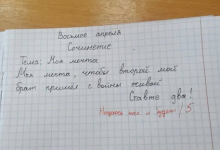 Восьмое апреля
Сочинение
Тема: Моя мечта
Моя мечта, чтобы второй мой
брат пришёл с войны живой
Ставте два!
так и будет! 5